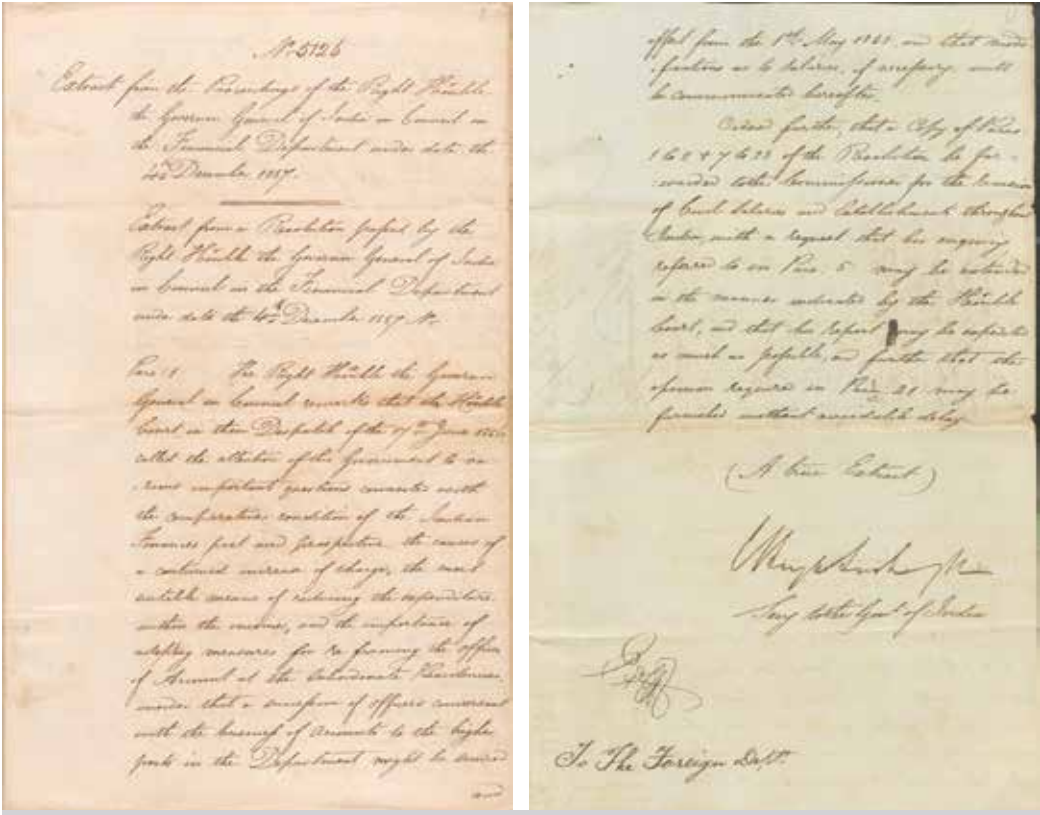 No 5126
Extract from the Proceedings of the Right Honble
the Governor General of India in Council in
the Financial Department under date the
4th December 1857.
Extract from a Resolution passed by the
Right Honble the Governor General of India
in Council in the Financial Department
under date the 4th December 1857 No
Para: 1. The Right Honble the Governor
General in Council remarks that the Honble
Court in their Despatch of the June
called the attention of this Government to va-
rious important questions connected with
the comparative condition of the Indian
Finances past and prospective the causes of
a continued increase of charge, the most
suitable means of reducing the expenditure
within the income, and the importance of
adopting measures for re framing the offices
of Account at the Subordinate Presidencies
under that a succession of officers conversant
with the business of Accounts to the higher
posts in the Department might be secured
and
effect from the 1st May and that modi
fications as to Salaries, if necessary, will
be communicated hereafter.
Ordered further, that a Copy of Paras
1 to & 7 to 23 of the Resolution be for-
warded to the Commissioner for the Revision
of Civil Salaries and Establishments throughout
India with a request that his enquiry
referred to in Para. 5 may be extended
in the manner indicated by the Honble
Court, and that his report may be expedited
as much as possible, and further that the
opinion required in Para 21 may be
furnished without avoidable delay
(A true Extract)
Secy to the Govt of India
To The Foreign Dept.